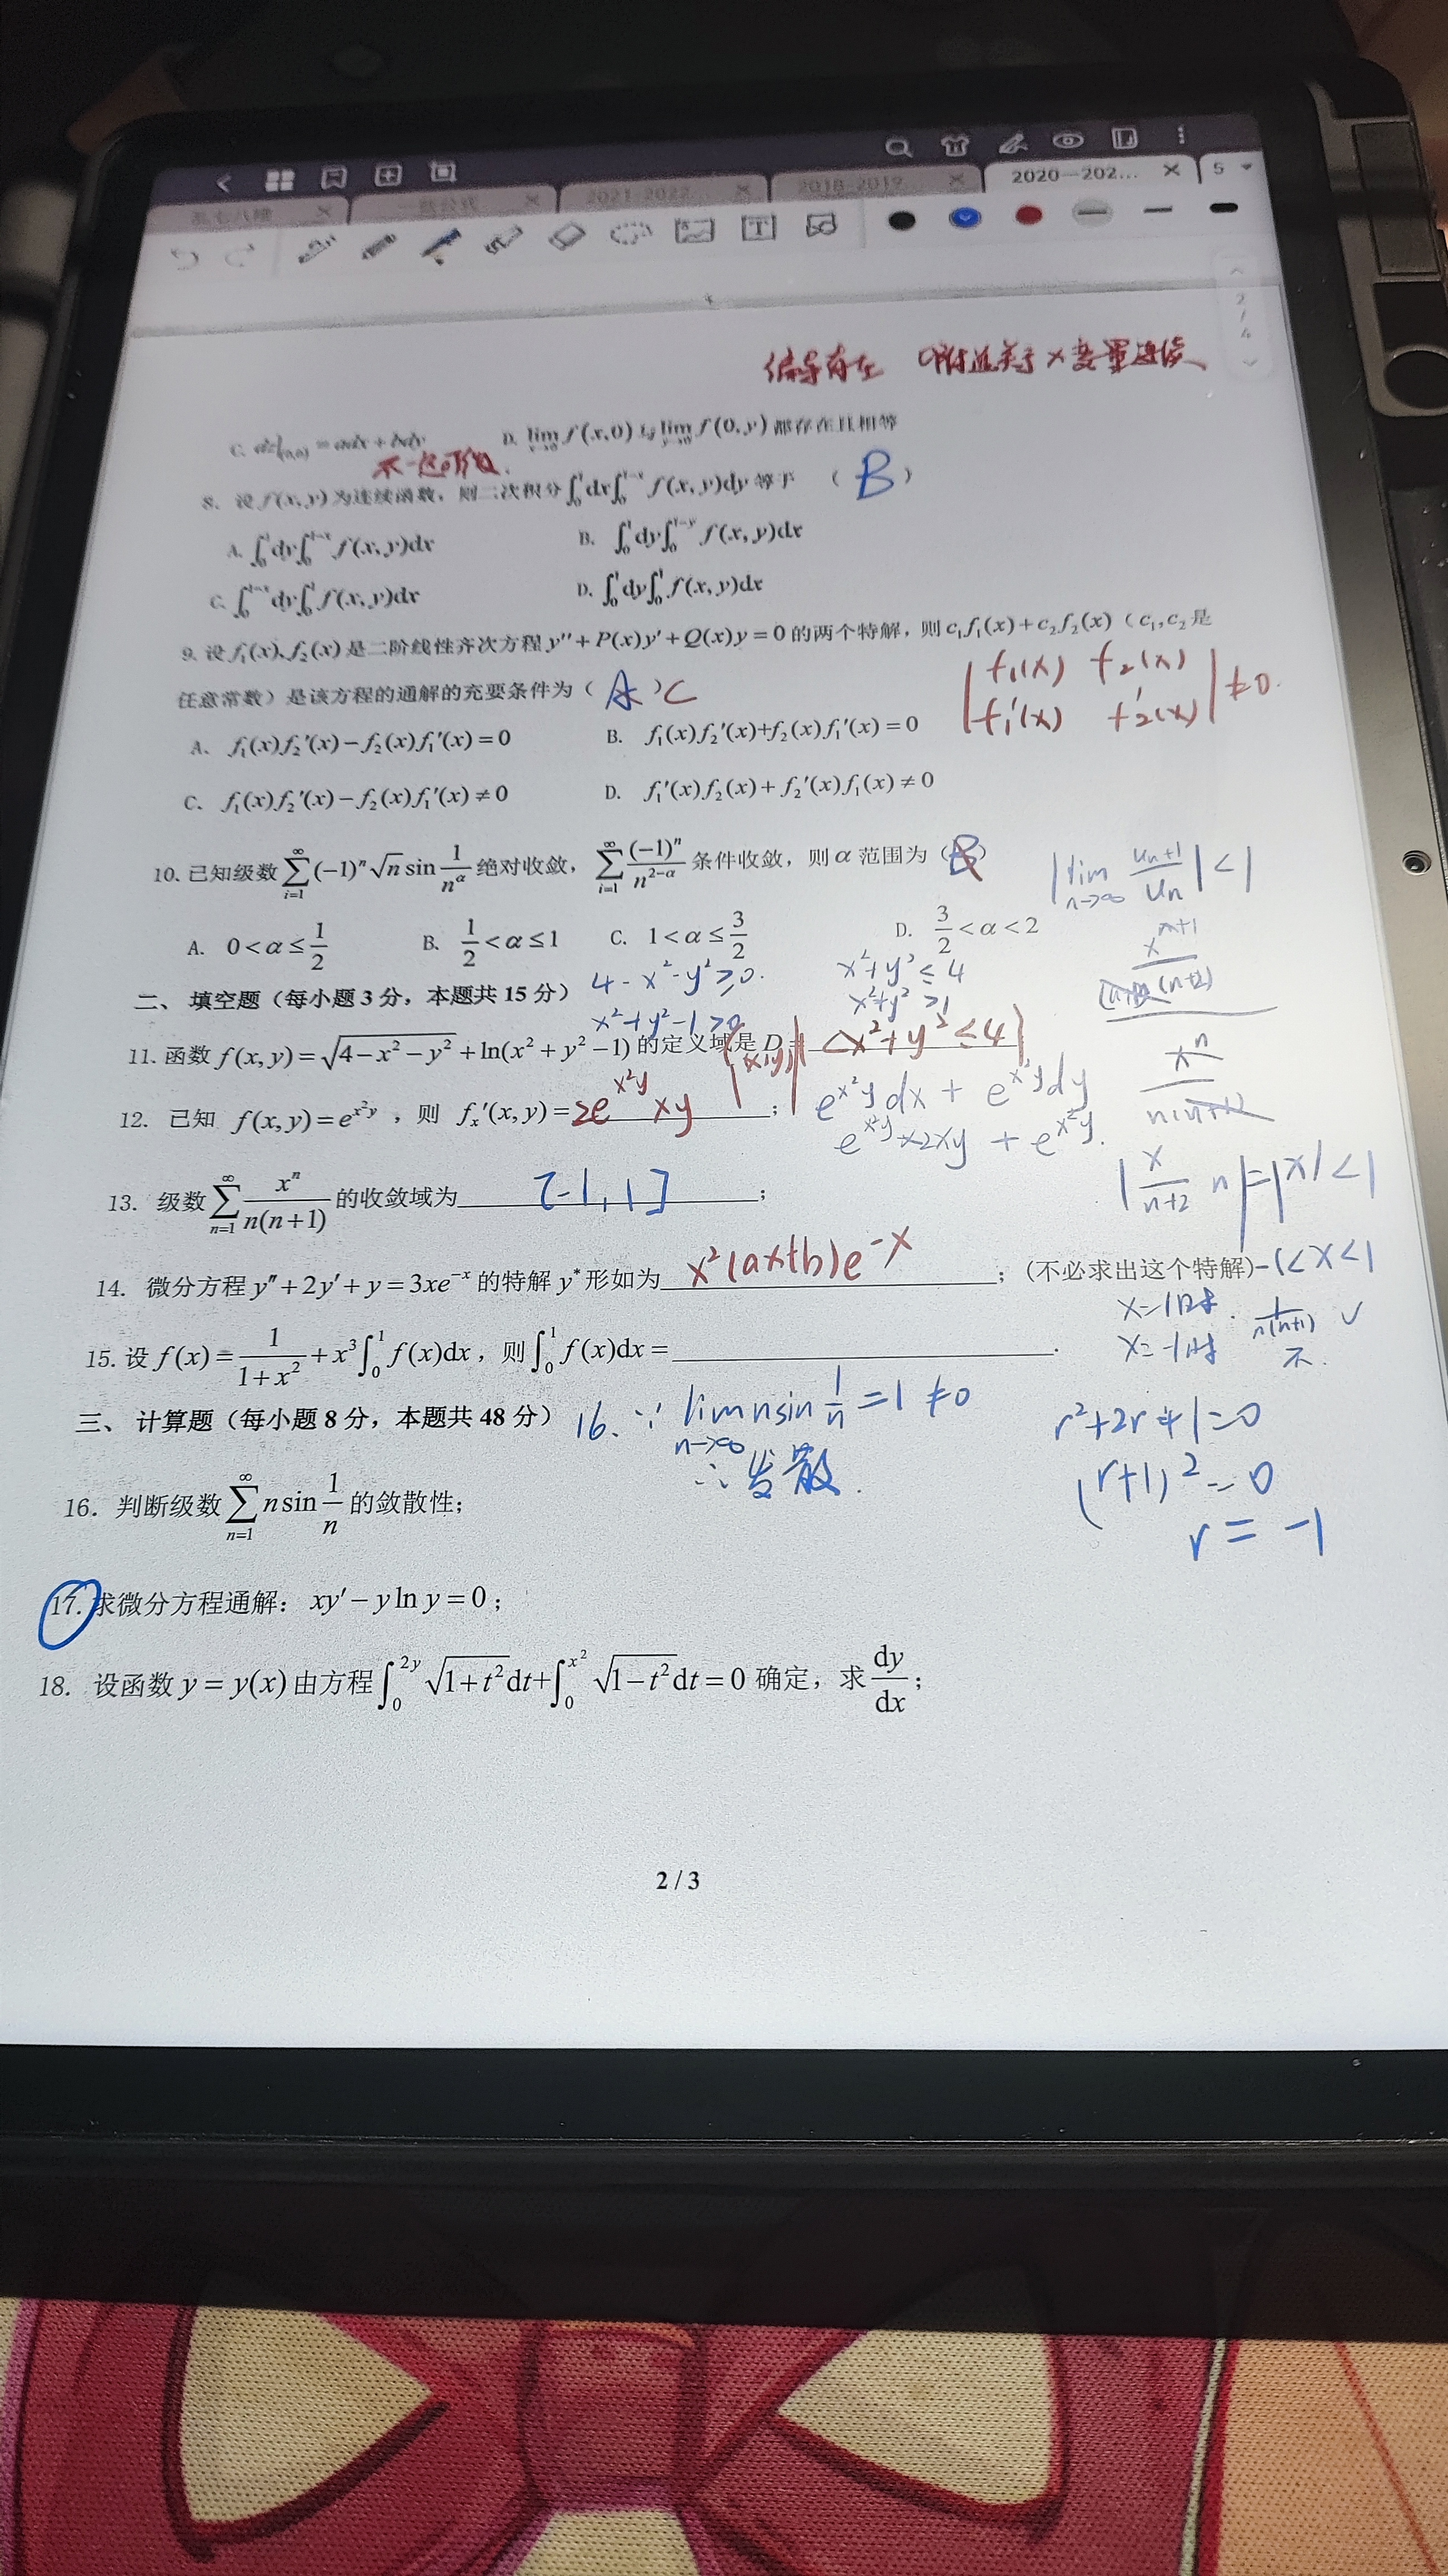 2021-2022...
2018-2019...
2020—202...
5
2
/
4
偏导存在
C. dz|(0,0) = adx + bdy
D. lim f(x,0) 与 lim f(0,y) 都存在且相等
不一定可微.
8. 设 f(x,y) 为连续函数，则二次积分 ∫₀¹dx∫₀^(1-x) f(x,y)dy 等于 （ B ）
A. ∫₀¹dy∫₀^(1-x) f(x,y)dx
B. ∫₀¹dy∫₀^(1-y) f(x,y)dx
C. ∫₀^(1-x)dy∫₀¹ f(x,y)dx
D. ∫₀¹dy∫₀¹ f(x,y)dx
9. 设 f₁(x)、f₂(x) 是二阶线性齐次方程 y″+P(x)y′+Q(x)y=0 的两个特解，则 c₁f₁(x)+c₂f₂(x)（c₁,c₂ 是
任意常数）是该方程的通解的充要条件为（ A ）C
| f₁(x) f₂(x) |
| f₁′(x) f₂′(x) | ≠0.
A、 f₁(x)f₂′(x)−f₂(x)f₁′(x)=0
B. f₁(x)f₂′(x)+f₂(x)f₁′(x)=0
C、 f₁(x)f₂′(x)−f₂(x)f₁′(x)≠0
D. f₁′(x)f₂(x)+f₂′(x)f₁(x)≠0
10. 已知级数 ∑_(i=1)^∞ (−1)ⁿ√n sin 1/n^α 绝对收敛，∑_(i=1)^∞ (−1)ⁿ/n^(2−α) 条件收敛，则 α 范围为（B）
|lim_(n→∞) u_(n+1)/u_n| < 1
A. 0<α≤1/2
B. 1/2<α≤1
C. 1<α≤3/2
D. 3/2<α<2
x^(n+1)
(n+2)
二、 填空题（每小题 3 分，本题共 15 分）
4−x²−y²≥0.
x²+y²≤4
x²+y²−1>0
x²+y²>1
11. 函数 f(x,y)=√(4−x²−y²)+ln(x²+y²−1) 的定义域是 D={(x,y)|1<x²+y²≤4}
xⁿ
n(n+1)
12. 已知 f(x,y)=e^(x²y) ，则 fₓ′(x,y)=2e^(x²y)xy；
e^(x²y)dx + e^(x²y)dy
e^(x²y)×2xy + e^(x²y).
13. 级数 ∑_(n=1)^∞ xⁿ/(n(n+1)) 的收敛域为 [-1,1] ；
|x/(n+2) n|=|x|<1
14. 微分方程 y″+2y′+y=3xe^(−x) 的特解 y* 形如为 x²(ax+b)e^(−x) ；(不必求出这个特解)
-1<x<1
x=1时. 1/(n(n+1)) ✓
x=-1时 不.
15. 设 f(x)=1/(1+x²)+x³∫₀¹ f(x)dx，则 ∫₀¹ f(x)dx=________.
三、 计算题（每小题 8 分，本题共 48 分）
16. ∵ lim_(n→∞) n sin 1/n =1 ≠0
∴发散.
r²+2r+1=0
(r+1)²=0
r=-1
16. 判断级数 ∑_(n=1)^∞ n sin 1/n 的敛散性；
17. 求微分方程通解： xy′−y ln y=0；
18. 设函数 y=y(x) 由方程 ∫₀^(2y) √(1+t²)dt+∫₀^(x²) √(1−t²)dt=0 确定，求 dy/dx；
2 / 3